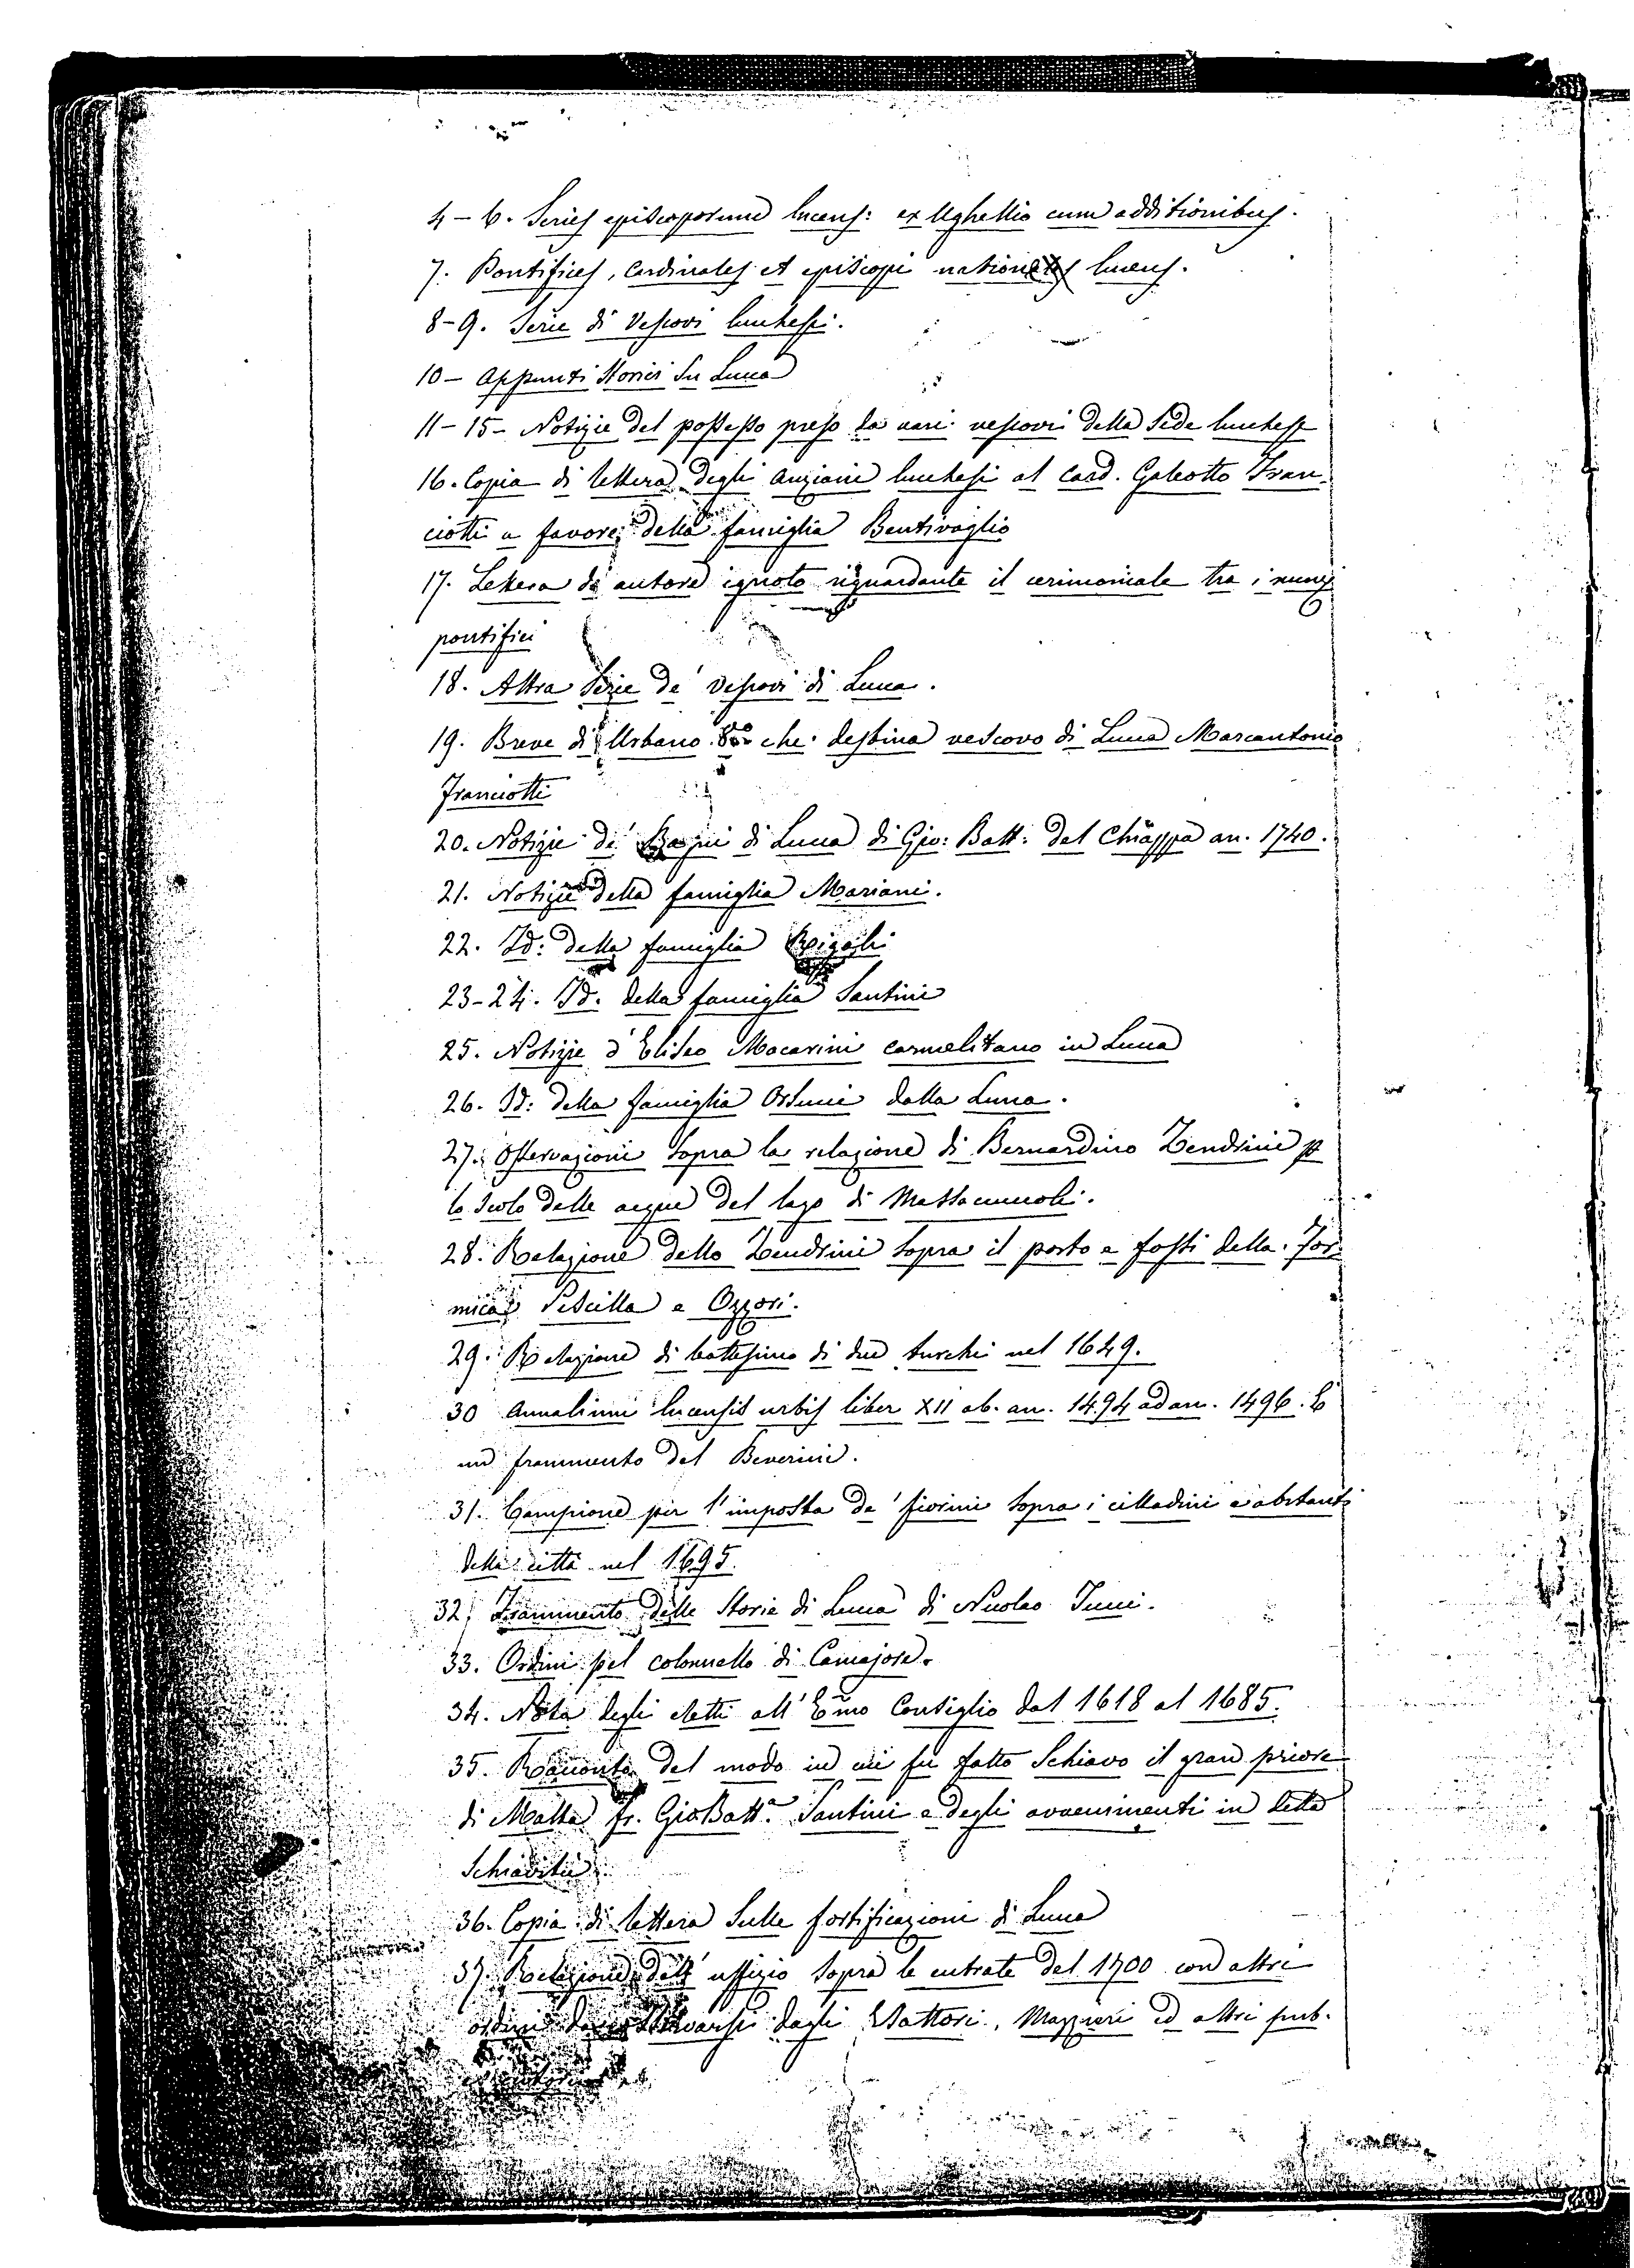 4 - 6. Series episcoporum lucens: ex Ughellio cum additionibus.
7. Pontifices, Cardinales et episcopi natione lucens.
8-9. Serie di Vescovi lucchesi.
10 - Appunti storici su Lucca
11 - 15 - Notizie del possesso preso da vari vescovi della Sede lucchese
16. Copia di lettera degli anziani lucchesi al Card. Galeotto Fran-
ciotti a favore della famiglia Bentivoglio
17. Lettera di autore ignoto riguardante il cerimoniale tra i nunzj
pontifici
18. Altra Serie de' Vescovi di Lucca.
19. Breve di Urbano 8º che destina vescovo di Lucca Marcantonio
Franciotti
20. Notizie de' Bagni di Lucca di Gio: Batt: del Chiappa an. 1740.
21. Notizie della famiglia Mariani.
22. Id: della famiglia
23-24. Id. della famiglia Santini
25. Notizie d'Eliseo Macarini carmelitano in Lucca
26. Id: della famiglia Orsucci dalla Luna.
27. Osservazioni sopra la relazione di Bernardino Zendrini p
lo scolo delle acque del lago di Massacciuccoli.
28. Relazione dello Zendrini sopra il porto e fossi della For-
mica, Pescilla e Ozzori.
29. Relazione di battesimo di due turchi nel 1649.
30 Annalium lucensis urbis liber XII ab. an. 1494 ad an. 1496. È
un frammento del Beverini.
31. Campione per l'imposta de' fiorini sopra i cittadini e abitanti
della città nel 1695.
32. Frammento delle Storie di Lucca di Nicolao Tucci.
33. Ordini pel colonnello di Camajore.
34. Nota degli eletti all' Emo Consiglio dal 1618 al 1685.
35. Racconto del modo in cui fu fatto Schiavo il gran priore
di Malta fr. Gio Batt.ª Santini e degli avvenimenti in detta
Schiavitù.
36. Copia di lettera sulle fortificazioni di Lucca
37. Relazione dell' uffizio sopra le entrate del 1700 con altri
ordini da osservarsi dagli Esattori, Mazzieri ed altri pub.